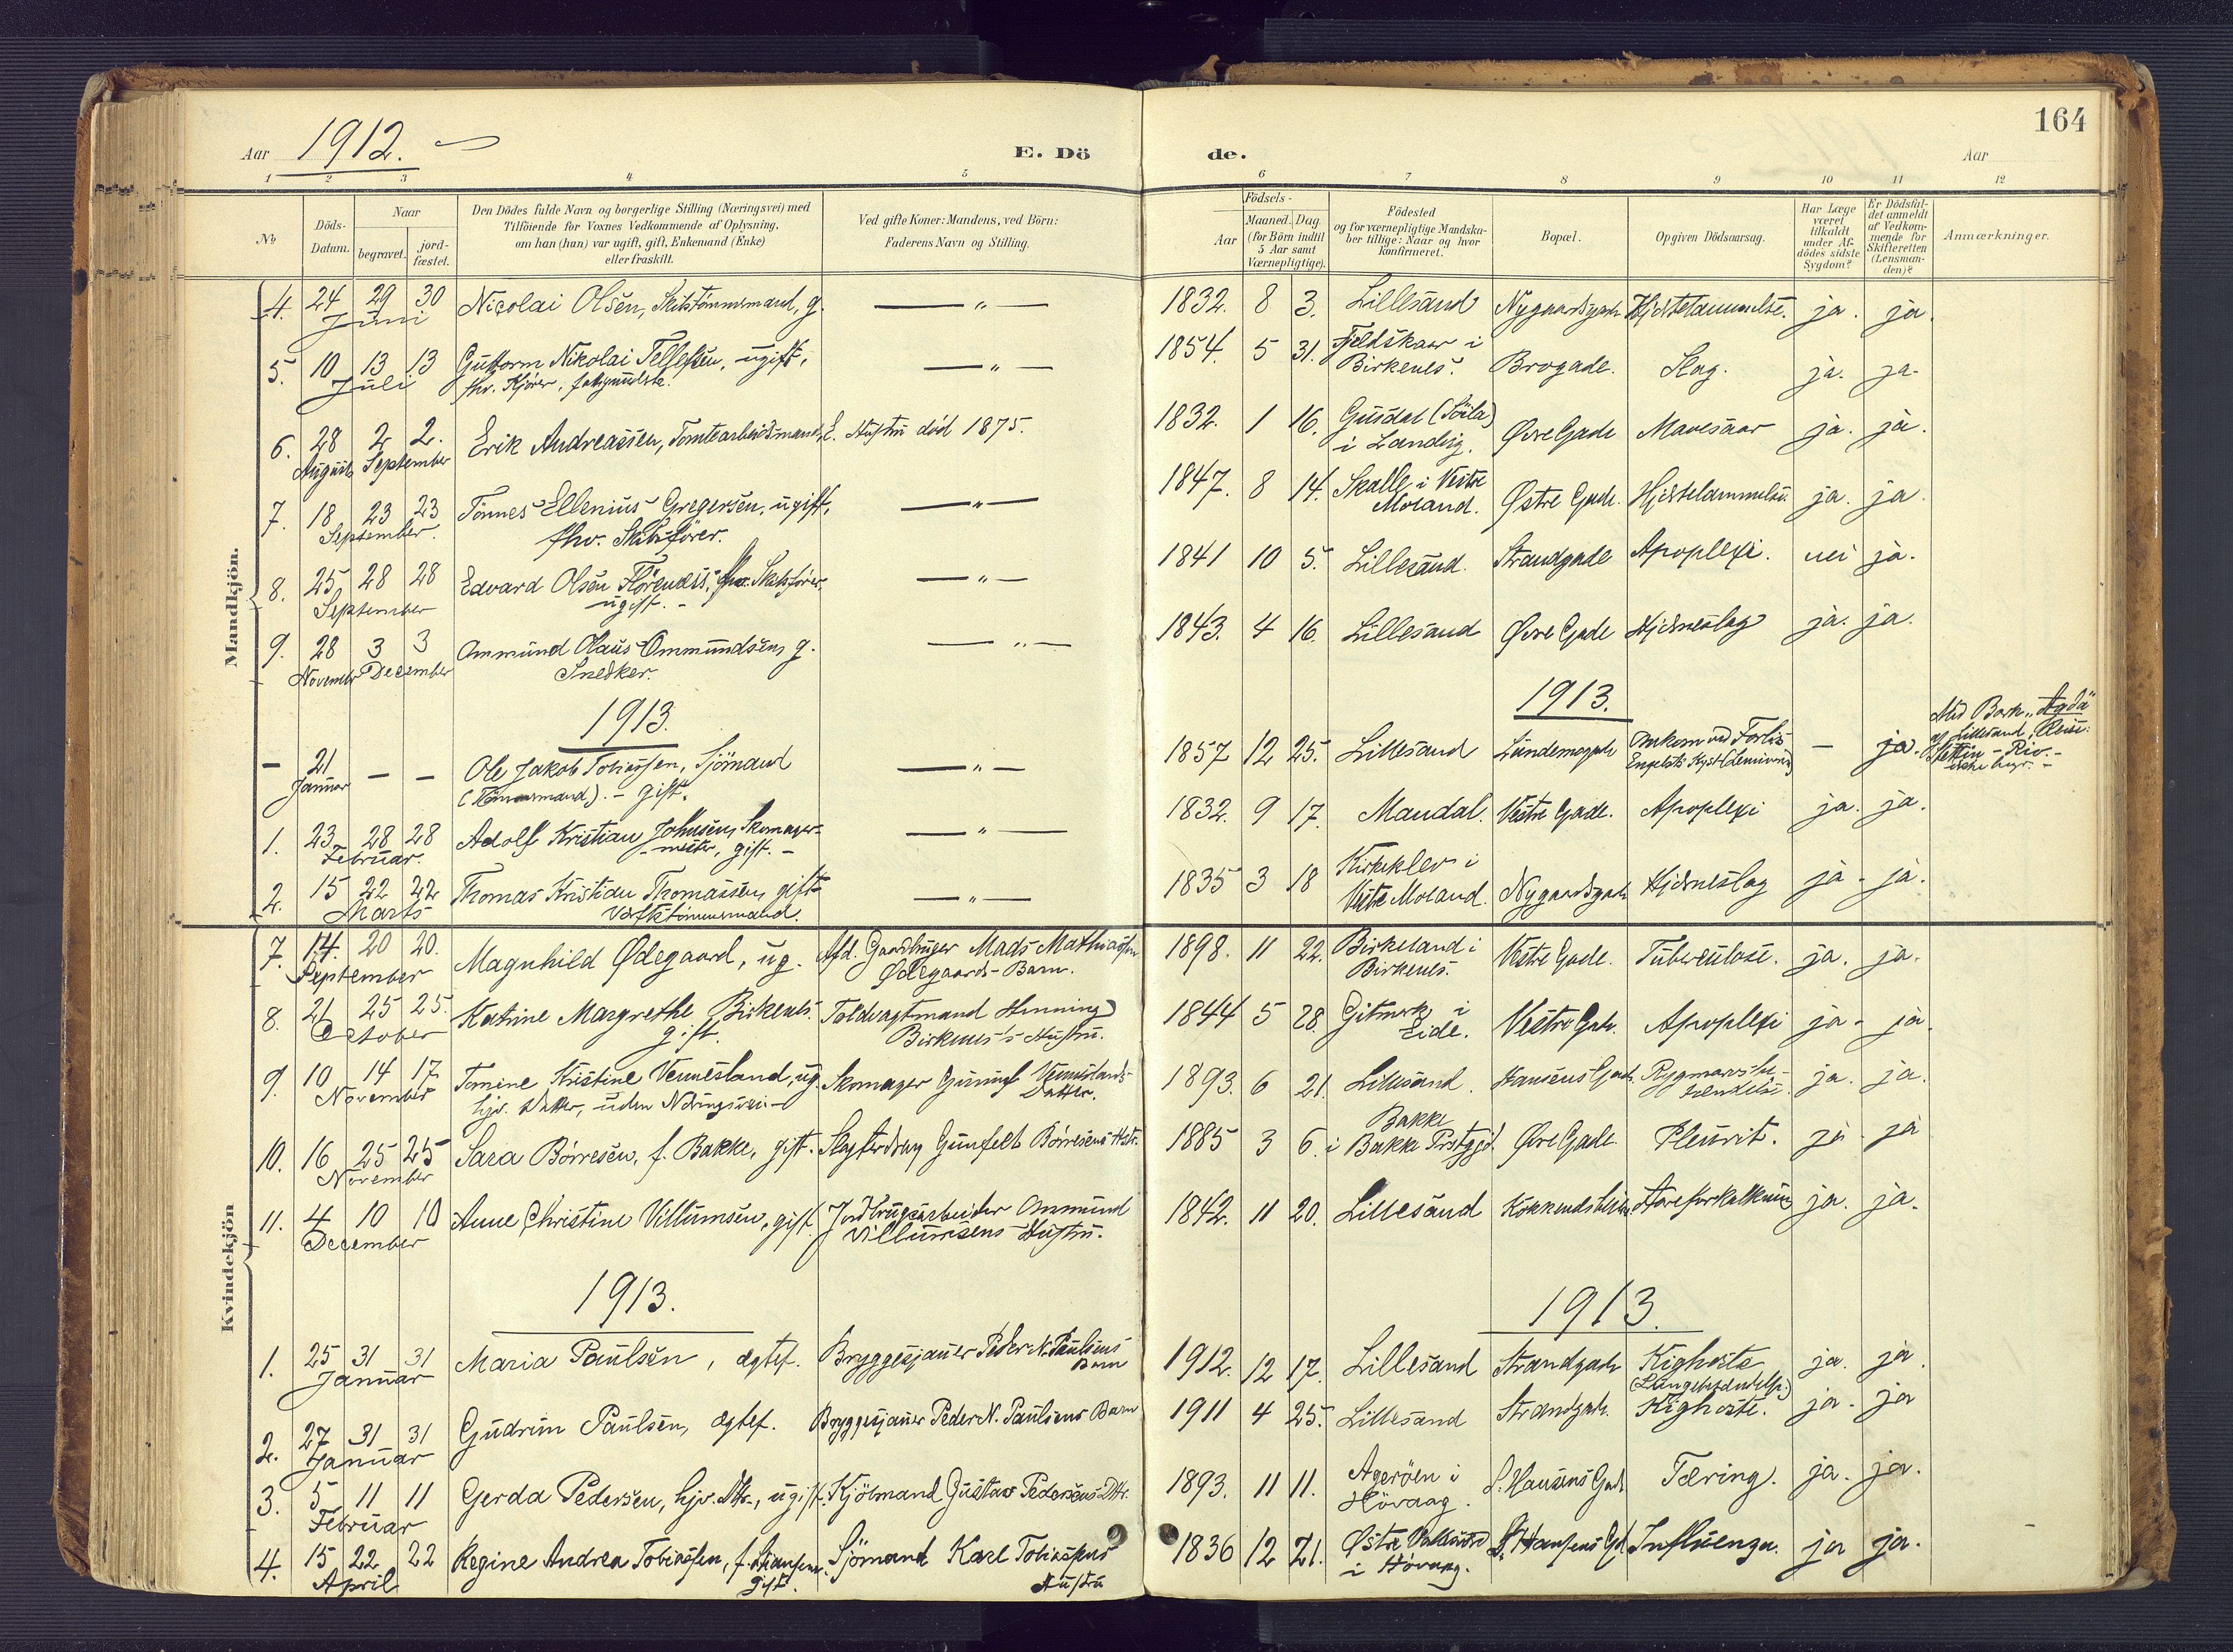 164
Aar 1912.
E. Döde.
Aar
1 2 3 4 5 6 7 8 9 10 11 12
No
Döds-Datum.
Naar
begravet.
jord-fæstet.
Den Dödes fulde Navn og borgerlige Stilling (Næringsvei) med
Tilföiende for Voxnes Vedkommende af Oplysning,
om han (hun) var ugift, gift, Enkemand (Enke)
eller fraskilt.
Ved gifte Koner: Mandens, ved Börn:
Faderens Navn og Stilling.
Födsels-
Aar
Maaned. Dag.
(for Börn indtil
5 Aar samt
Værnepligtige).
Födested
og for værnepligtige Mandska-
ber tillige: Naar og hvor
konfirmeret.
Bopæl.
Opgiven Dödsaarsag.
Har Læge
været
tilkaldt
under Af-
dödes sidste
Sygdom?
Er Dödsfal-
det anmeldt
af Vedkom-
mende for
Skifteretten
(Lensman-
den)?
Anmærkninger.
Mandkjön.
4. 24 29 30 Nicolai Olsen, Skibstømmermand, g. — " — 1832. 8 3. Lillesand Nygaardsgade ja. ja.
Juni
5. 10 13 13 Guttorm Nikolai Tellefsen, ugift, — " — 1854. 5 31. Fjeldskaar i Brogade. Slag. ja. ja.
Juli Birkenes.
6. 28 2 2. Erik Andreassen, Tomtearbeidsmand, E. Hustru død 1875. 1832. 1 16. Øvre Gade Mavesaar ja. ja.
August September i Landvig.
7. 18 23 23 Tønnes Ellenius Gregersen, ugift, — " — 1847. 8 14. Skalle i Vestre Østre Gade. ja. ja.
September. fhv. Skibsfører. Moland.
8. 25 28 28 Edvard Olsen Florenæss, fhv. Skibsfører, — " — 1841 10 5. Lillesand. Strandgade Apoplexi. nei ja.
September ugift. -
9. 28 3 3 Ommund Olaus Ommundsen, g. — " — 1843. 4 16 Lillesand Øvre Gade Hjerneslag ja. ja.
November December Snedker.
1913. 1913.
— 21 — — Ole Jakob Tobiassen, Sjömand — " — 1857 12 25. Lillesand Omkom ved Forlis — ja.
Januar (Tømmermand). - gift. Engelsk Kyst
Med Bark "Agda"
af Lillesand, Reise:
Stettin - Rio. -
1. 23 28 28 Adolf Kristian Johnsen, Skomager- — " — 1832. 9 17. Mandal. Vestre Gade. Apoplexi ja. ja.
Februar. mester, gift. -
2. 15 22 22 Thomas Kristian Thomassen, gift — " — 1835 3 18 Kirkeklev i Nygaardsgade Hjerneslag ja. ja.
Marts Værftstømmermand. Vestre Moland.
Kvindekjön
7. 14. 20 20. Magnhild Ødegaard, ug. Afd. Gaardbruger Mads Mathiassen 1898. 11 22. Birkeland i Vestre Gade. Tuberculose. ja. ja.
September Ødegaards - Barn. Birkenes.
8. 21 25 25. Katrine Margrethe Birkenes. Toldvagtmand Henning 1844 5 28. Gitmark i Vestre Gade. Apoplexi ja. ja.
October gift. Birkenes's Hustru. Eide.
9. 10 14 17 Tomine Kristine Vennesland, ug. Skomager Gunuf Venneslands 1893. 6 21. Lillesand. Hansens Gade. Rygmarvsbe- ja. ja.
November hjv. Datter, uden Næringsvei - Datter. tændelse.
10. 16 25 25 Sara Børresen, f. Bakke, gift. Slagterdreng Gunfelt Børresens Hstr. 1885 3 6. Bakke Øvre Gade Pleurit. ja ja
November i Bakke Prstgjd.
11. 4 10 10 Anne Christine Villumsen, gift. Jordbrugsarbeider Omsmund 1842. 11 20. Lillesand Aareforkalkning ja. ja.
December Villumsens Hustru.
1913. 1913.
1. 25 31 31 Maria Paulsen, ægtef. Bryggesjauer Peder N. Paulsens 1912. 12 17. Lillesand Strandgade Kighoste ja. ja.
Januar Barn (Lungebetændelse.)
2. 27 31 31 Gudrun Paulsen, ægtef. Bryggesjauer Peder N. Paulsens Barn 1911 4 25. Lillesand Strandgade. Kighoste. ja. ja
Januar
3. 5 11 11 Gerda Pedersen, hjv. Dtr., ugift. Kjölmand Gustav Pedersens Dtr. 1893. 11 11. Agerøen i S. Hansens Gade Tæring. ja. ja.
Februar Høvaag.
4. 15 22 22 Regine Andrea Tobiassen, Sjömand Karl Tobiassens 1836 12 21. Østre i Høvaag. Influenza. ja ja.
April gift. Hustru